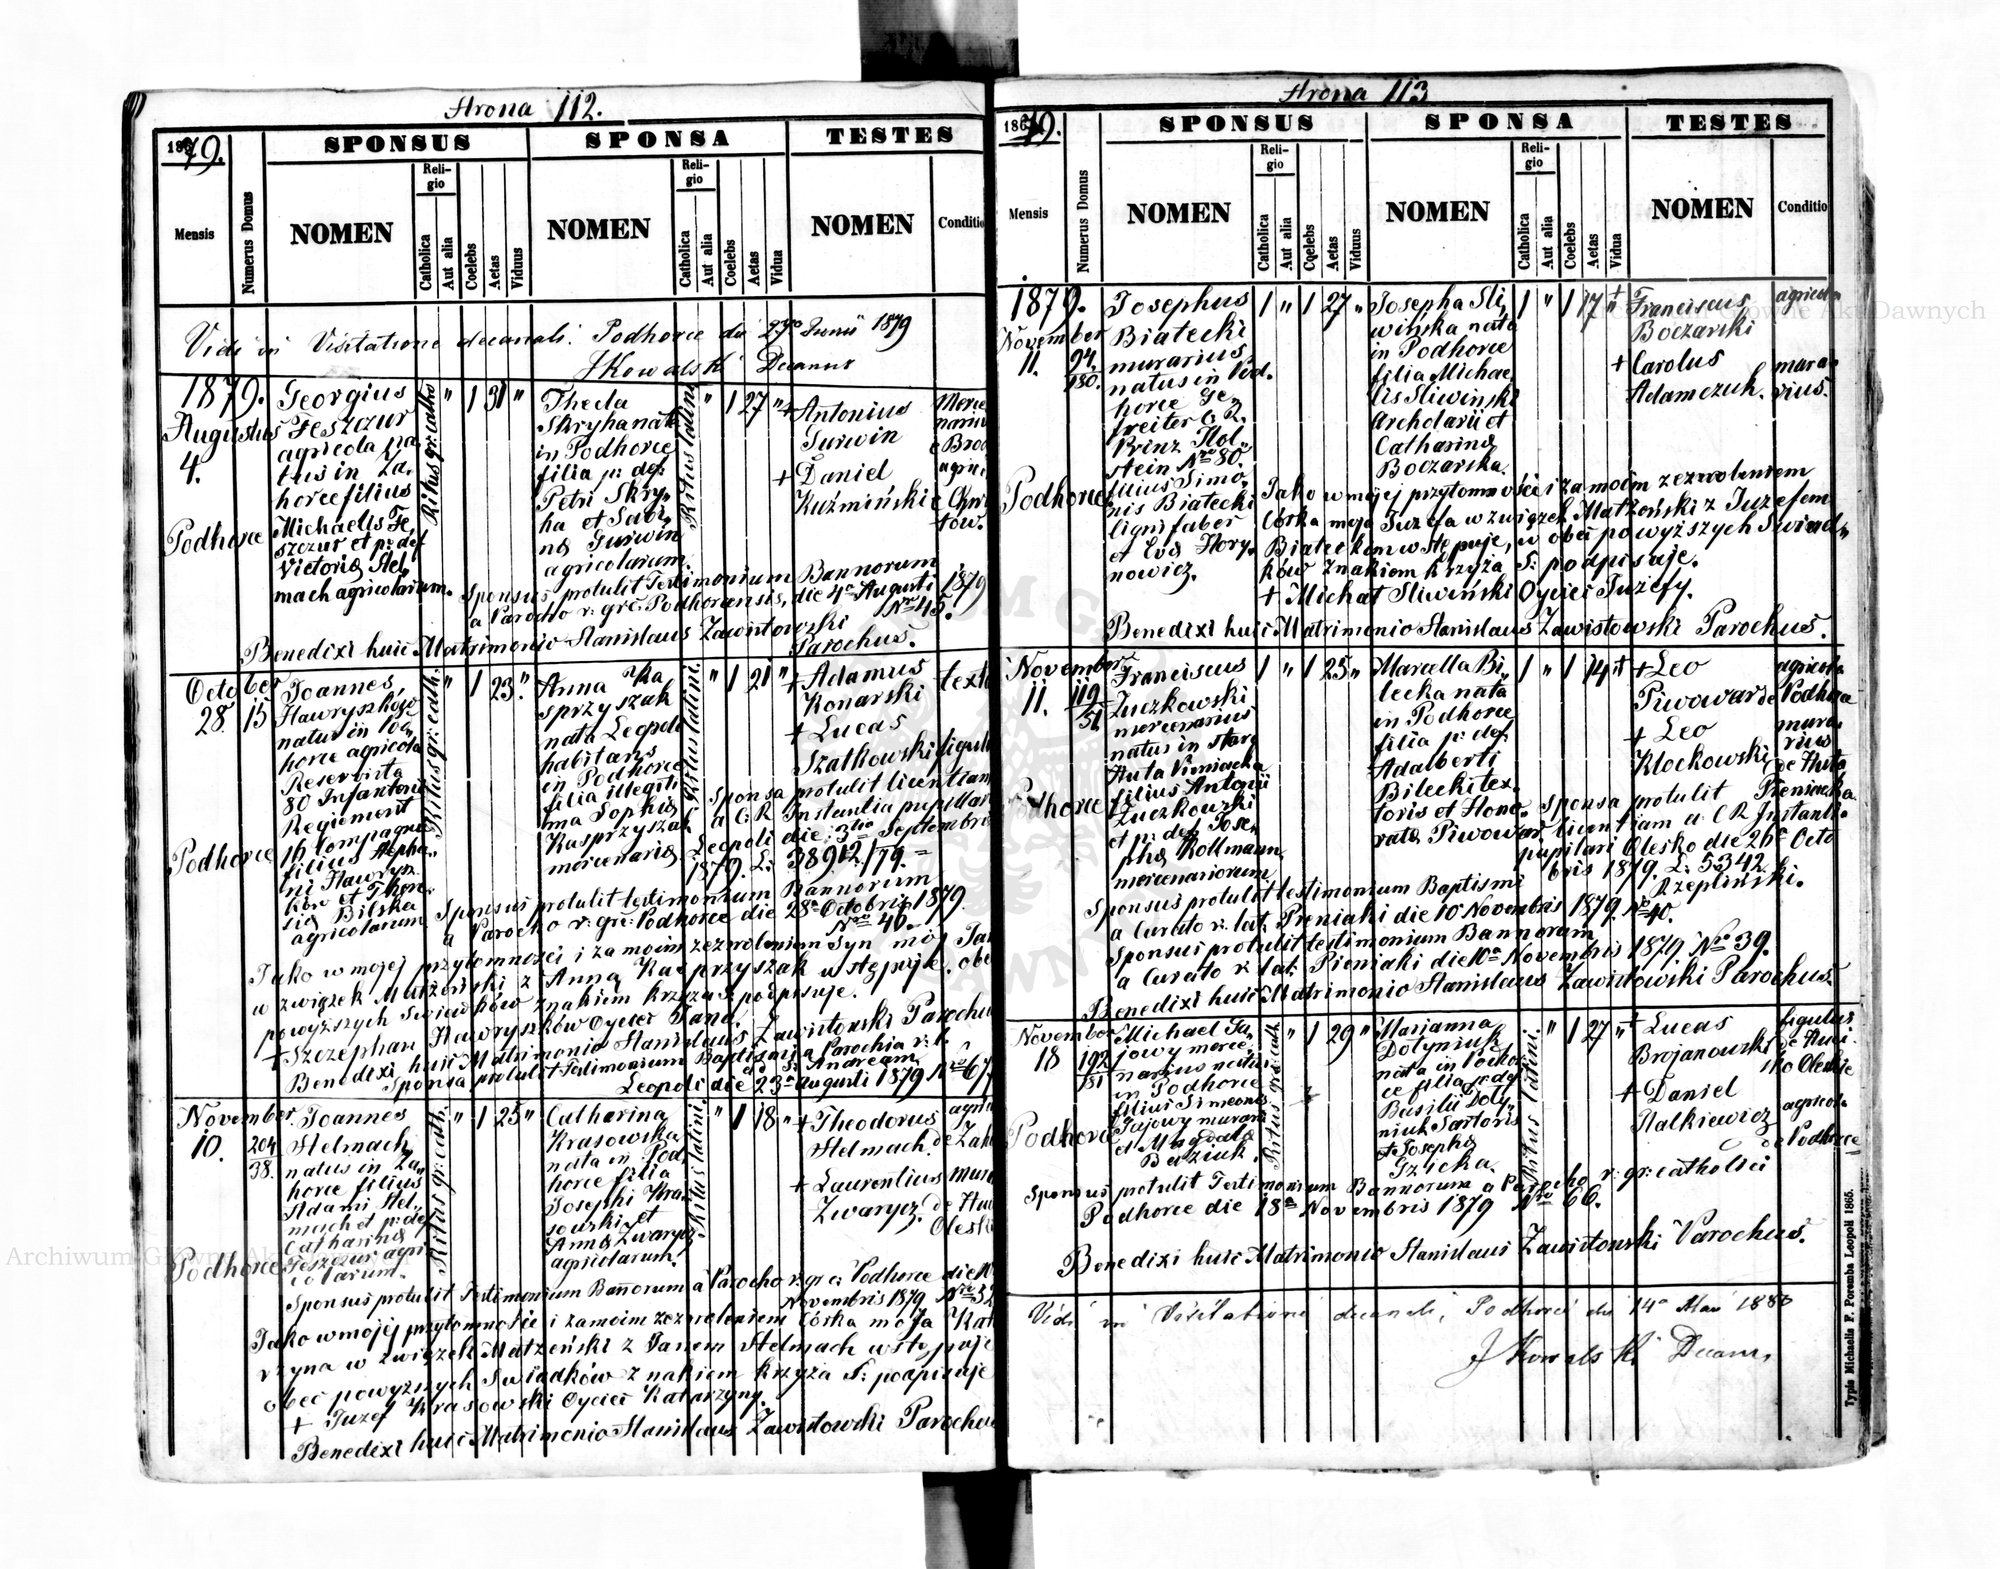 Strona 112.
1879.
SPONSUS
SPONSA
TESTES
Mensis
Numerus Domus
NOMEN
Religio
Catholica
Aut alia
Coelebs
Aetas
Viduus
NOMEN
Religio
Catholica
Aut alia
Coelebs
Aetas
Vidua
NOMEN
Conditio
Vidi in Visitatione decanali Podhorce die 27 Junii 1879
JKowalski Decanus
1879.
Augustus
4.
Podhorce
Georgius
Feszczur
agricola na
tus in Za
horce filius
Michaelis Fe
szczur et p: def
Victoriæ Hel
mach agricolarum.
Ritus gr: catho
" 1 31 "
Thecla
Skryha nata
in Podhorce
filia p: def:
Petri Skry
ha et Sabi
næ Gurwin
agricolarum.
Ritus latini
" 1 27 "
+ Antonius
Gurwin
+ Daniel
Kuźmiński
Merce
narius
e Brod
agri
e Chwa
tow.
Sponsus protulit Testimonium Bannorum
a Parocho r: gr: Podhorcensis, die 4a Augusti 1879
Nro 45.
Benedixi huic Matrimonio Stanislaus Zawistowski
Parochus.
October
28. 15
Podhorce
Joannes
Hawryszków
natus in Pod
horce agricola
Reservista
80 Infanterie
Regiement
16 Compagnie
filius Stepha
ni Hawrysz
ków et Theo
siæ Bilska
agricolarum
Ritus gr: cath:
" 1 23 "
Anna Ka
sprzyszak
nata Leopoli
habitans
in Podhorce
filia illegiti
ma Sophiæ
Kasprzyszak
mercenariæ
Ritus latini.
" 1 21 "
+ Adamus
Konarski
+ Lucas
Szatkowski
textor
figulus
Sponsa protulit licentiam
a C: R Instantia pupillari
Leopoli die: 3tia Septembris
1879. L: 38912/79.
Sponsus protulit testimonium Bannorum
a Parocho r: gr: Podhorce die 28a Octobris 1879
Nro 46.
Jako w mojej przytomności i za moim zezwoleniem Syn mój Jan
w związek Małżeński z Anną Kasprzyszak wstępuje. obec
powyższych świadków znakiem krzyża S: podpisuje.
+ Szczephan Hawryszków Oyciec Jana.
Benedixi huic Matrimonio Stanislaus Zawistowski Parochus
Sponsa protulit Testimonium Baptismi a Parochia r: l.
ad S: Andream
Leopoli die 23a Augusti 1879 Nro 67
November
10. 204
38.
Podhorce
Joannes
Helmach
natus in Za
horce filius
Adami Hel
mach et p: def
Catharinæ
Feszczur agri
colarum.
Ritus gr: cath.
" 1 25 "
Catharina
Krasowska
nata in Pod
horce filia
Josephi Kra
sowski et
Annæ Zwarycz
agricolarum.
Ritus latini.
" 1 18 "
+ Theodorus
Helmach.
+ Laurentius
Zwarycz.
agric
de Zah
mura
de Hut
Olesko
Sponsus protulit Testimonium Bannorum a Parocho r: gr c: Podhorce die 10
Novembris 1879 Nro 52
Jako w mojej przytomności i za moim zezwoleniem Córka moja Kata
rzyna w związek Małżeński z Janem Helmach wstępuje
obec powyższych świadków znakiem krzyża S: podpisuje
+ Juzef Krasowski Oyciec Katarzyny.
Benedixi huic Matrimonio Stanislaus Zawistowski Parochus
Strona 113
1879.
SPONSUS
SPONSA
TESTES
Mensis
Numerus Domus
NOMEN
Religio
Catholica
Aut alia
Coelebs
Aetas
Viduus
NOMEN
Religio
Catholica
Aut alia
Coelebs
Aetas
Vidua
NOMEN
Conditio
1879.
November
11. 94.
180.
Podhorce
Josephus
Białecki
murarius
natus in Pod.
horce Ge
freiter C. R.
Prinz Hol
stein Nro 80.
filius Simo
nis Białecki
ligni faber
et Evæ Hory
nowicz.
1 " 1 27 "
Josepha Sli
wińska nata
in Podhorce
filia Michae
lis Sliwiński
Archolarii et
Catharinæ
Boczarska.
1 " 1 17 "
+ Franciscus
Boczarski
+ Carolus
Adamczuk.
agricola
mura
rius.
Jako w mojej przytomności i za moim zezwoleniem
Córka moja Juzefa w związek Małżeński z Juzefem
Białeckim wstępuje, w obec powyższych świad
ków znakiem krzyża S: podpisuje.
+ Michał Sliwiński Oyciec Juzefy.
Benedixi huic Matrimonio Stanislaus Zawistowski Parochus.
November
11. 119
51.
Podhorce
Franciscus
Zuczkowski
mercenarius
natus in stara
Huta Pieniacka
filius Antonii
Zuczkowski
et p: def: Jose
phæ Kollmann
mercenariorum
1 " 1 25 "
Marcella Bi
lecka nata
in Podhorce
filia p: def:
Adalberti
Bilecki tex
toris et Hono
ratæ Piwowar
1 " 1 14 "
+ Leo
Piwowar
+ Leo
Klockowski
agricola
de Podhorce
mura
rius
de Huta
Pieniacka
Sponsa protulit
licentiam a: C R Instanti
pupilari Olesko die 26a Octo
bris 1879. L: 5342.
Rzepliński.
Sponsus protulit testimonium Baptismi
a Curato r: lat: Pieniaki die 10 Novembris 1879. Nro 40.
Sponsus protulit testimonium Bannorum
a Curato r: lat: Pieniaki die 10a Novembris 1879. Nro 39.
Benedixi huic Matrimonio Stanislaus Zawistowski Parochus.
November
18 192
181
Podhorce
Michael Ga
jowy merce
narius natus
in Podhorce
filius Simeonis
Gajowy murarii
et Magdalæ
Bałziuk.
Ritus gr: cath
" 1 29 "
Marianna
Dotyniuk
nata in Podhor
ce filia p: def
Basilii Doty
niuk Sartoris
et Josephæ
Gzicka.
Ritus latini.
" 1 27 "
+ Lucas
Brojanowski
+ Daniel
Nalkiewicz
figulus
de Huci
sko Oleskie
agricola
de Podhorce
Sponsus protulit Testimonium Bannorum a Parocho r: gr: catholici
Podhorce die 18a Novembris 1879 Nro 66.
Benedixi huic Matrimonio Stanislaus Zawistowski Parochus.
Vidi in Visitatione decanali, Podhorce die 14a Maii 1880
JKowalski Decanus
Typis Michaelis F. Poremba Leopoli 1865.
Archiwum Główne Akt Dawnych
Archiwum Główne Akt Dawnych